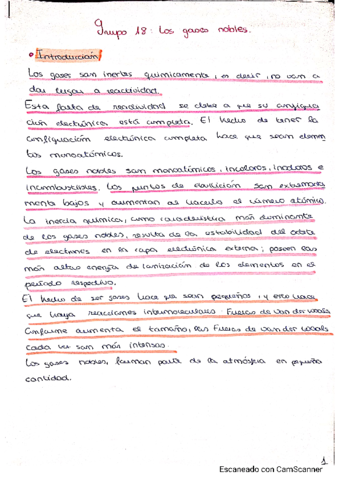 Grupo 18: Los gases nobles.
• Introducción
Los gases son inertes químicamente, es decir, no van a
dar lugar a reactividad.
Esta falta de reactividad se debe a que su configura
ción electrónica está completa. El hecho de tener la
configuración electrónica completa hace que sean elemen
tos monoatómicos.
Los gases nobles son monoatómicos, incoloros, inodoros e
incombustibles. Los puntos de ebullición son extremada
mente bajos y aumentan al hacerlo el número atómico.
La inercia química, como característica más dominante
de los gases nobles, resulta de la estabilidad del octete
de electrones en la capa electrónica externa; poseen la
más altas energía de ionización de los elementos en el
periodo respectivo.
El hecho de ser gases hace que sean pequeños, y esto hace
que haya reacciones intermoleculares. Fuerzas de Van der Waals
Conforme aumenta el tamaño, las Fuerzas de van der waals
cada vez son más intensas.
Los gases nobles, forman parte de la atmósfera en pequeña
cantidad.
1
Escaneado con CamScanner